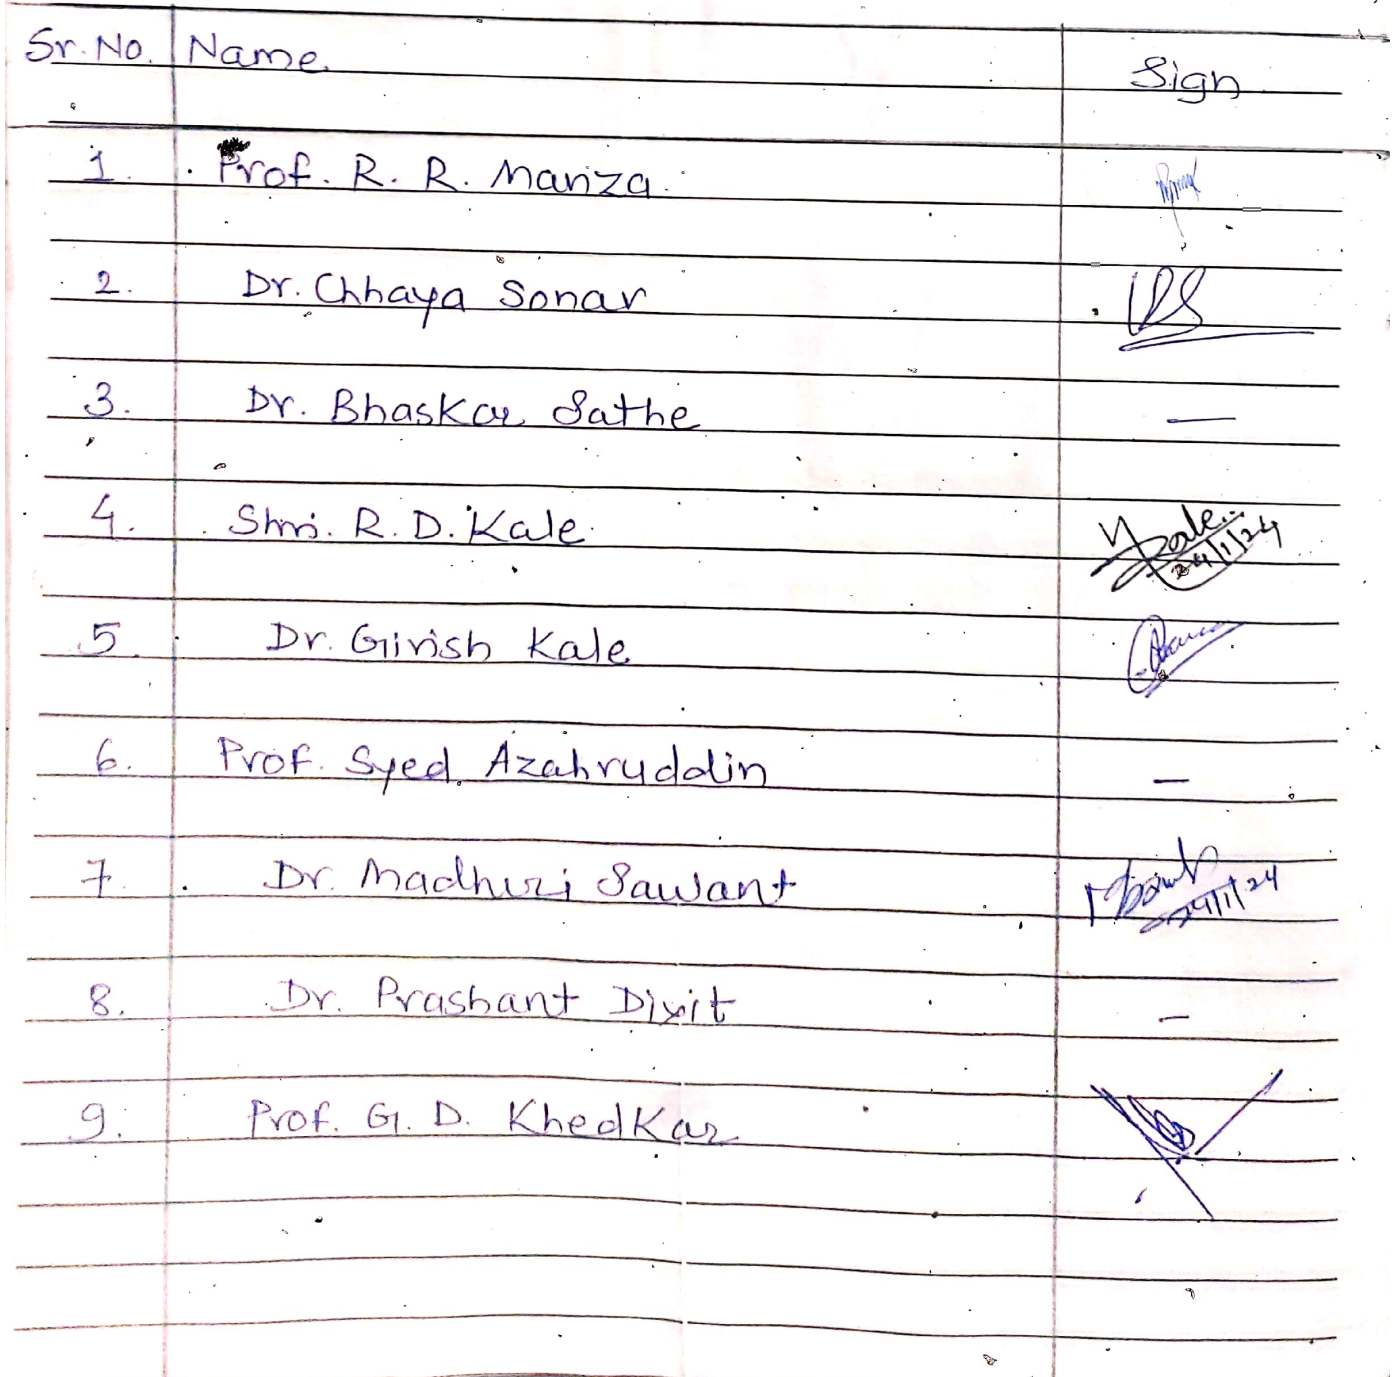 Sr. No. Name Sign
1. Prof. R. R. Manza.
2. Dr. Chhaya Sonar
3. Dr. Bhaskar Sathe —
4. Shri. R. D. Kale. Kale 24/1/24
5. Dr. Girish Kale
6. Prof. Syed Azahruddin —
7. Dr. Madhuri Sawant 24/1/24
8. Dr. Prashant Dixit —
9. Prof. G. D. Khedkar